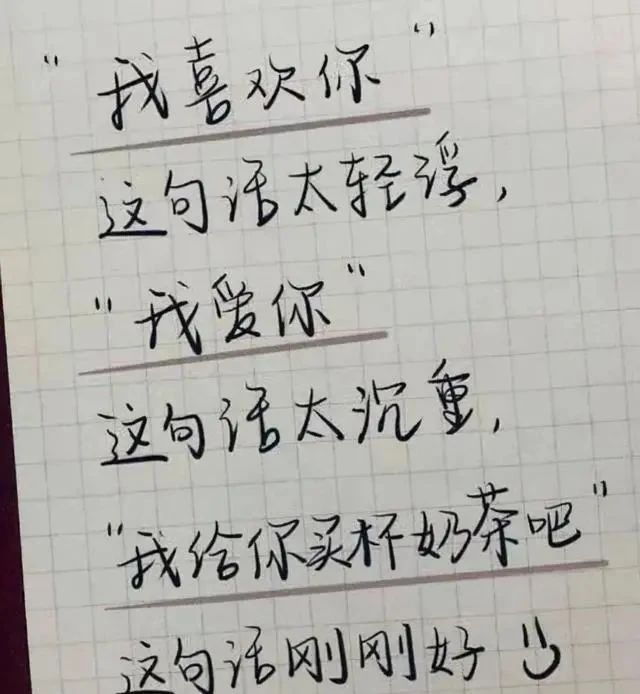 "我喜欢你"
这句话太轻浮,
"我爱你"
这句话太沉重,
"我给你买杯奶茶吧"
这句话刚刚好